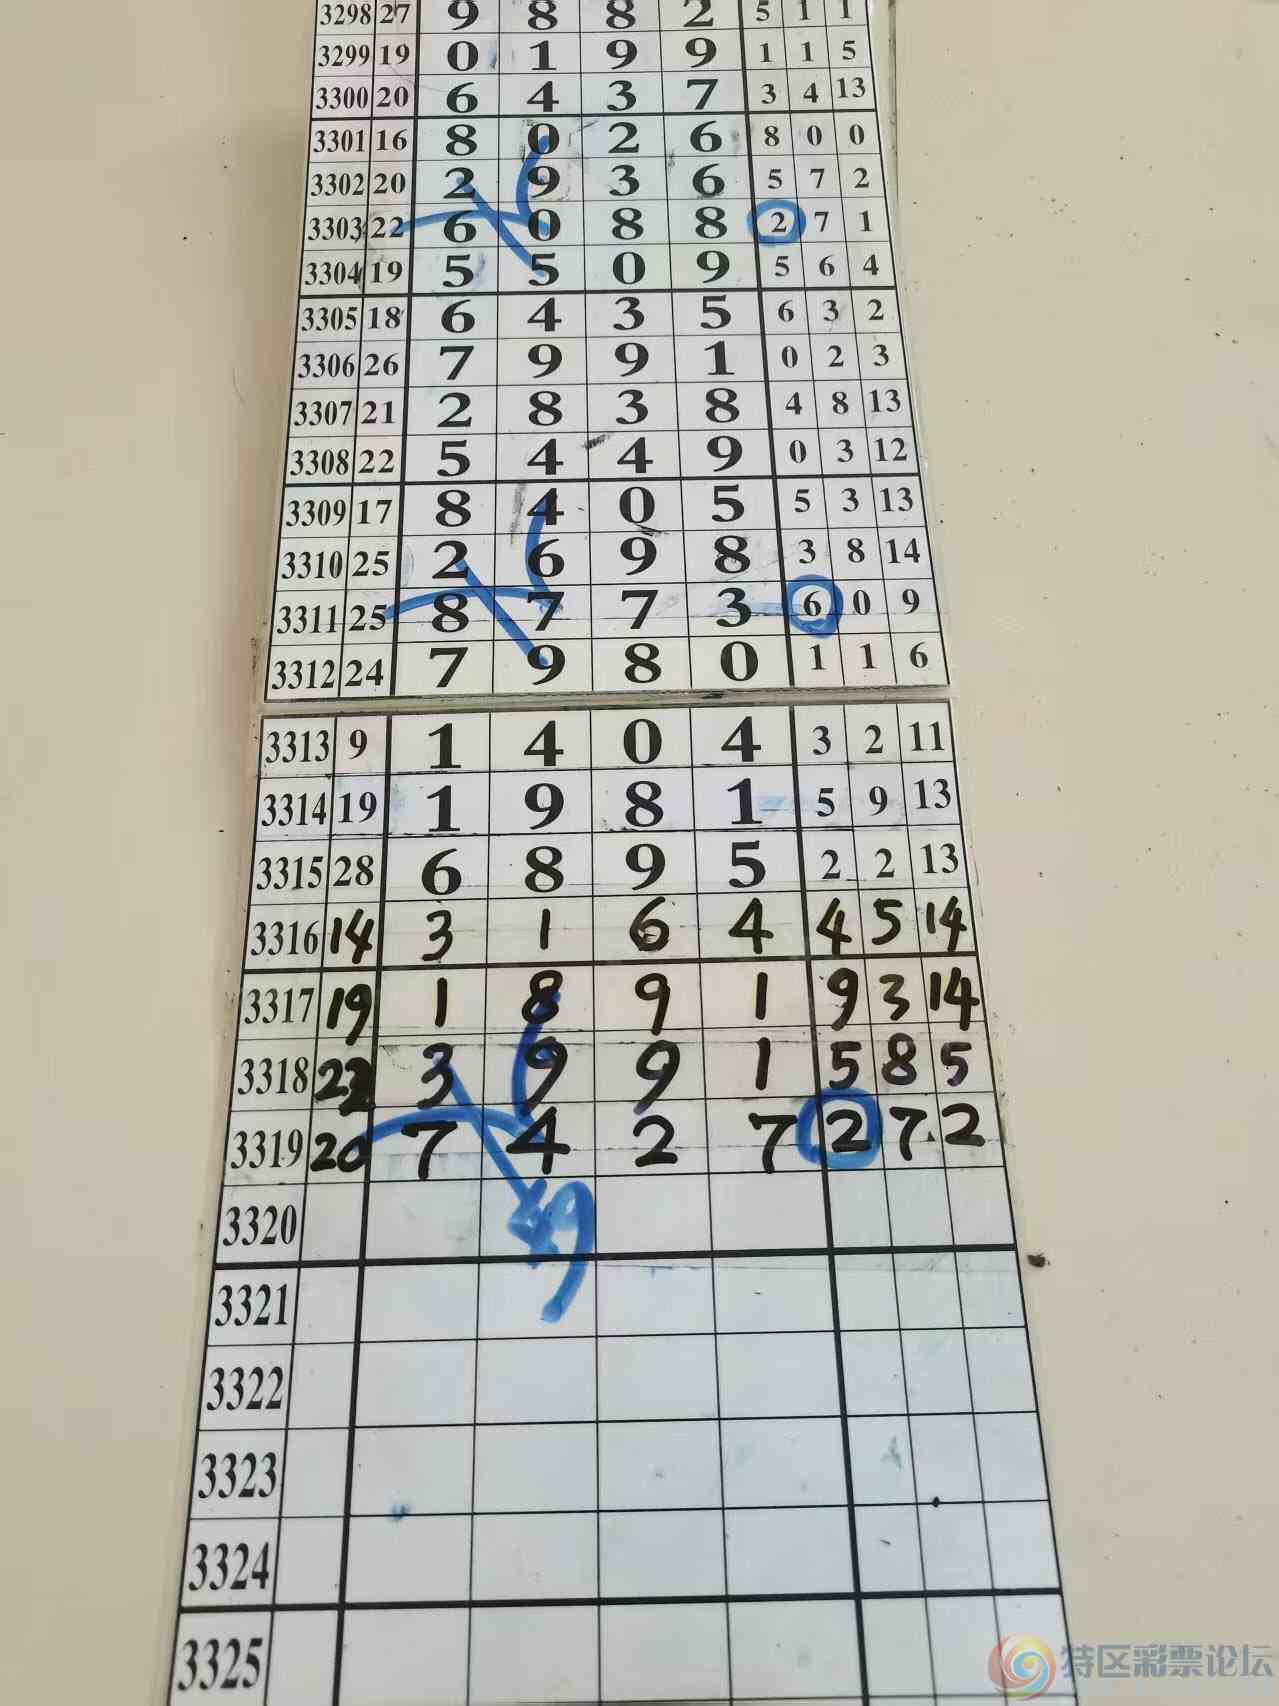 3298 27 9 8 8 2 5 1 1
3299 19 0 1 9 9 1 1 5
3300 20 6 4 3 7 3 4 13
3301 16 8 0 2 6 8 0 0
3302 20 2 9 3 6 5 7 2
3303 22 6 0 8 8 2 7 1
3304 19 5 5 0 9 5 6 4
3305 18 6 4 3 5 6 3 2
3306 26 7 9 9 1 0 2 3
3307 21 2 8 3 8 4 8 13
3308 22 5 4 4 9 0 3 12
3309 17 8 4 0 5 5 3 13
3310 25 2 6 9 8 3 8 14
3311 25 8 7 7 3 6 0 9
3312 24 7 9 8 0 1 1 6
3313 9 1 4 0 4 3 2 11
3314 19 1 9 8 1 5 9 13
3315 28 6 8 9 5 2 2 13
3316 14 3 1 6 4 4 5 14
3317 19 1 8 9 1 9 3 14
3318 22 3 9 9 1 5 8 5
3319 20 7 4 2 7 2 7 2
3320 9
3321
3322
3323
3324
3325
特区彩票论坛